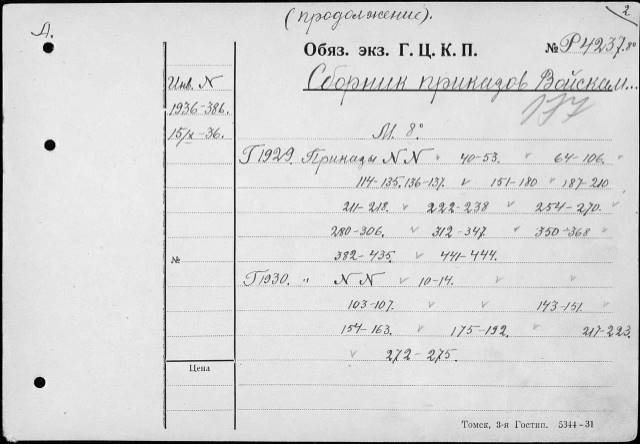 (продолжение). 2
Д.
Обяз. экз. Г. Ц. К. П. № Р4237.8°
Сборник приказов Войскам...
Инв. N
1936-386.
177
15/x-36.
М. 8°
Г1929. Приказы NN " 40-53. " 64-106. "
114-135. 136-137. " 151-180 " 187-210
211-218. " 222-238 " 254-270. "
280-306. " 312-347 " 350-368 "
№ 382-435. " 441-444.
Г1930. " NN " 10-14. " "
103-107. " " 143-151. "
154-163. " 175-192. " 217-223.
" 272-275.
Цена
Томск, 3-я Гостип. 5344-31